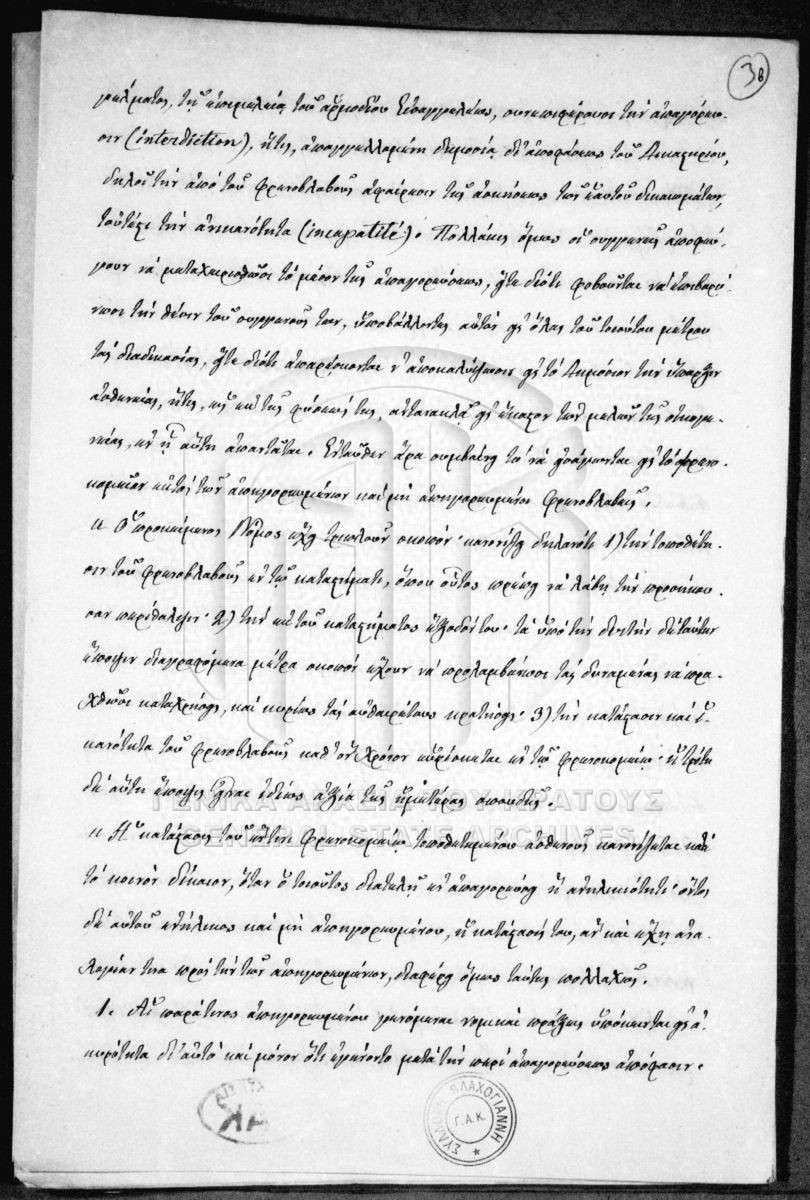 3β
γκλήματος, τῇ ἐπιμελείᾳ τοῦ ἁρμοδίου Εἰσαγγελέως, συνεπιφέρουσι τὴν ἀπαγόρευ-
σιν (interdiction), ἥτις, ἀπαγγελλομένη δημοσίᾳ δι' ἀποφάσεως τοῦ Δικαστηρίου,
δηλοῖ τὴν ἀπὸ τοῦ φρενοβλαβοῦς ἀφαίρεσιν τῆς ἀσκήσεως τῶν ἑαυτοῦ δικαιωμάτων,
τουτέστι τὴν ἀνικανότητα (incapatité). Πολλάκις ὅμως οἱ συγγενεῖς ἀποφεύ-
γουν νὰ μεταχειρισθῶσι τὸ μέσον τῆς ἀπαγορεύσεως, ἤτε διότι φοβοῦνται νὰ ἐπιβαρύ-
νωσι τὴν θέσιν τοῦ συγγενοῦς των, ὑποβάλλοντες αὐτὸν εἰς ὅλας τοῦ τοιούτου μέτρου
τὰς διαδικασίας, ἤτε διότι ἀπαρέσκονται ν' ἀποκαλύψωσιν εἰς τὸ Δημόσιον τὴν ὕπαρξιν
ἀσθενείας, ἥτις, ὡς ἐκ τῆς φύσεώς της, ἀντανακλᾷ εἰς ἕκαστον τῶν μελῶν τῆς οἰκογε-
νείας, ἐν ᾗ αὕτη ἀπαντᾶται. Ἐντεῦθεν ἄρα συμβαίνει τὸ νὰ εἰσάγωνται εἰς τὸ φρενο-
κομεῖον ἐκτὸς τῶν ἀπηγορευμένων καὶ μὴ ἀπηγορευμένοι φρενοβλαβεῖς.
" Ὁ προκείμενος Νόμος ἔχει τριπλοῦν σκοπόν· κανονίζει δηλονότι 1) τὴν τοποθέτη-
σιν τοῦ φρενοβλαβοῦς ἐν τῷ καταστήματι, ὅπου οὗτος πρέπει νὰ λάβῃ τὴν προσήκου-
σαν περίθαλψιν· 2) τὴν ἐκ τοῦ καταστήματος ἔξοδόν του· τὰ ὑπὸ τὴν διττὴν δὲ ταύτην
ἔποψιν διαγραφόμενα μέτρα σκοπὸν ἔχουν νὰ προλαμβάνωσι τὰς δυναμένας νὰ πρα-
χθῶσι καταχρήσεις, καὶ κυρίως τὰς αὐθαιρέτους κρατήσεις· 3) τὴν κατάστασιν καὶ ἱ-
κανότητα τοῦ φρενοβλαβοῦς καθ' ὃν χρόνον εὑρίσκεται ἐν τῷ φρενοκομείῳ· ἡ τρίτη
δὲ αὕτη ἔποψις εἶναι ἰδίως ἀξία τῆς ἡμετέρας σπουδῆς.
" Ἡ κατάστασις τοῦ ἔν τινι φρενοκομείῳ τοποθετημένου ἀσθενοῦς κανονίζεται κατὰ
τὸ κοινὸν δίκαιον, ὅταν ὁ τοιοῦτος διατελῇ ἐν ἀπαγορεύσει ἢ ἀνηλικιότητι· ὄντος
δὲ αὐτοῦ ἐνήλικος καὶ μὴ ἀπηγορευμένου, ἡ κατάστασίς του, ἂν καὶ ἔχῃ ἀνα-
λογίαν τινα πρὸς τὴν τῶν ἀπηγορευμένων, διαφέρει ὅμως ταύτης πολλαχῶς.
1. Αἱ παρά τινος ἀπηγορευμένου γενόμεναι νομικαὶ πράξεις ὑπόκεινται εἰς ἀ-
κυρότητα δι' αὐτὸ καὶ μόνον ὅτι ἐγένοντο μετὰ τὴν περὶ ἀπαγορεύσεως ἀπόφασιν.
ΓΕΝΙΚΑ ΑΡΧΕΙΑ ΤΟΥ ΚΡΑΤΟΥΣ
GENERAL STATE ARCHIVES
ΣΥΛΛΟΓΗ ΒΛΑΧΟΓΙΑΝΝΗ
Γ.Α.Κ.